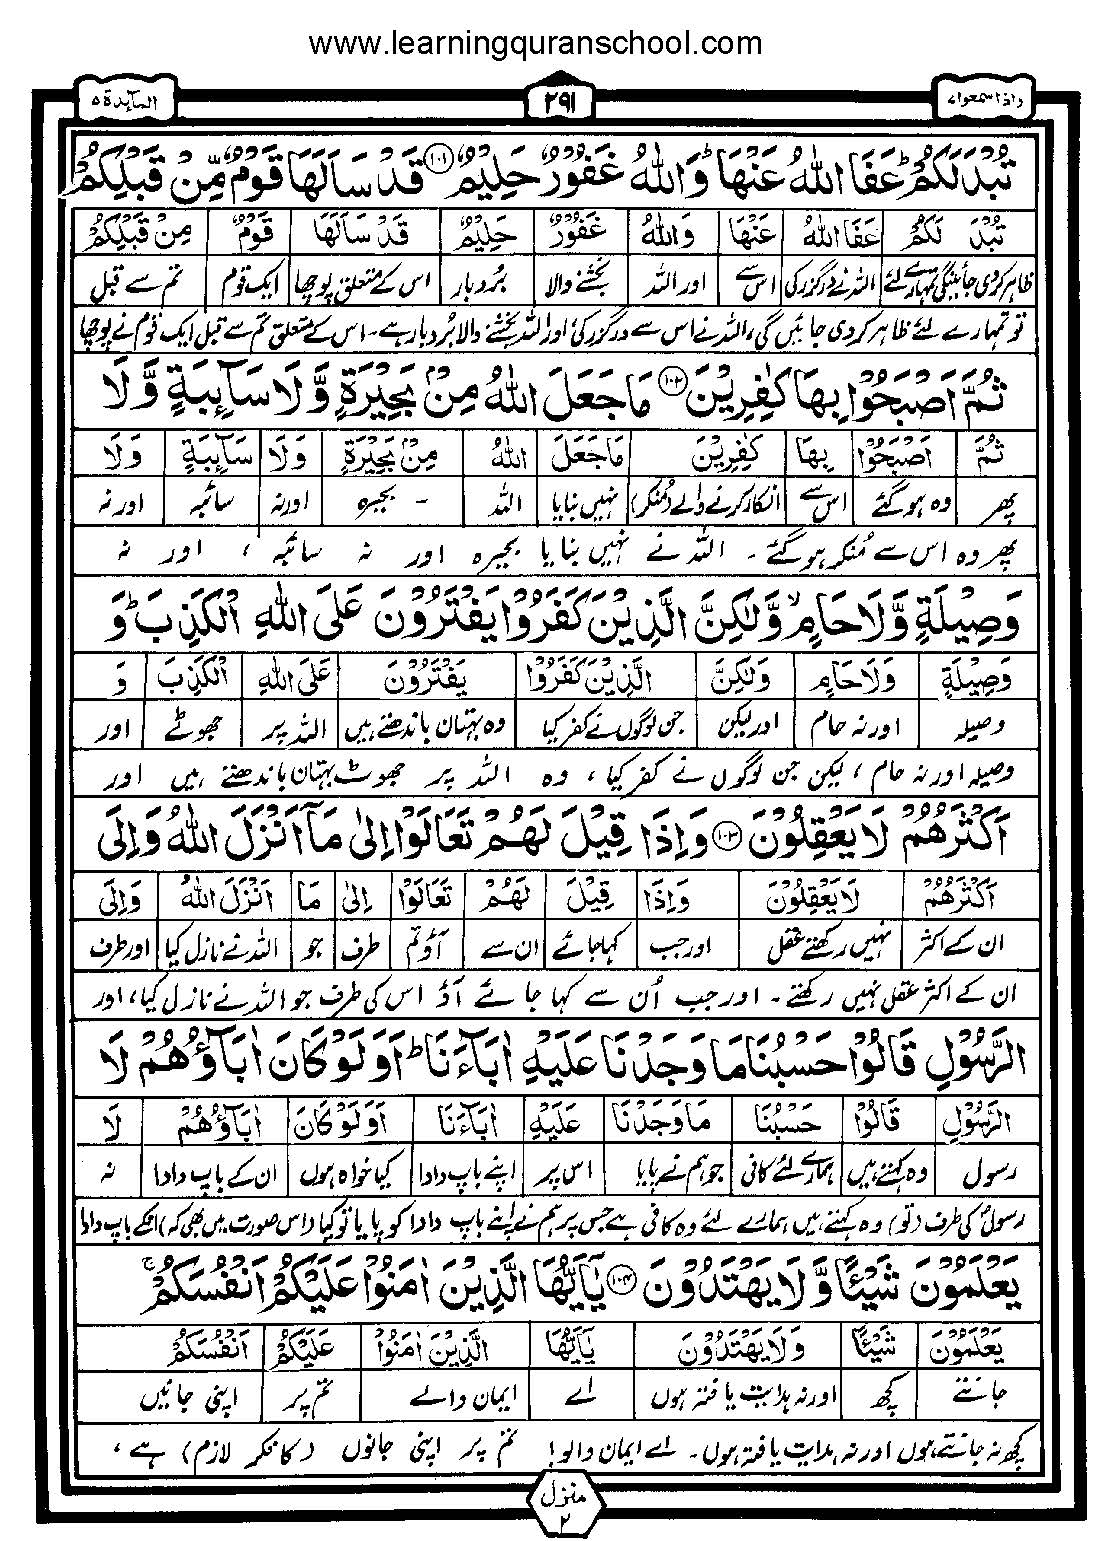 www.learningquranschool.com
واذا سمعوا ٧ ٢٩١ المآئدة ٥
تُبْدَ لَكُمْ ؕ عَفَا اللّٰهُ عَنْهَا ؕ وَاللّٰهُ غَفُوْرٌ حَلِيْمٌ ١٠١ قَدْ سَاَلَهَا قَوْمٌ مِّنْ قَبْلِكُمْ
تُبْدَ لَكُمْ عَفَا اللّٰهُ عَنْهَا وَاللّٰهُ غَفُوْرٌ حَلِيْمٌ قَدْ سَاَلَهَا قَوْمٌ مِنْ قَبْلِكُمْ
ظاہر کردی جائینگی تمہارے لئے اللہ نے درگزر کی اس سے اور اللہ بخشنے والا بردبار اس کے متعلق پوچھا ایک قوم تم سے قبل
تو تمہارے لئے ظاہر کردی جائیں گی، اللہ نے اس سے درگزر کی، اور اللہ بخشنے والا بردبار ہے۔ اس کے متعلق تم سے قبل ایک قوم نے پوچھا
ثُمَّ اَصْبَحُوْا بِهَا كٰفِرِيْنَ ١٠٢ مَا جَعَلَ اللّٰهُ مِنْۢ بَحِيْرَةٍ وَّلَا سَآئِبَةٍ وَّلَا
ثُمَّ اَصْبَحُوْا بِهَا كٰفِرِيْنَ مَا جَعَلَ اللّٰهُ مِنْۢ بَحِيْرَةٍ وَلَا سَآئِبَةٍ وَلَا
پھر وہ ہو گئے اس سے انکار کرنے والے (منکر) نہیں بنایا اللہ - بحیرہ اور نہ سائبہ اور نہ
پھر وہ اس سے منکر ہو گئے۔ اللہ نے نہیں بنایا بحیرہ اور نہ سائبہ، اور نہ
وَصِيْلَةٍ وَّلَا حَامٍ ۙ وَّلٰكِنَّ الَّذِيْنَ كَفَرُوْا يَفْتَرُوْنَ عَلَى اللّٰهِ الْكَذِبَ ؕ وَ
وَصِيْلَةٍ وَلَا حَامٍ وَلٰكِنَّ الَّذِيْنَ كَفَرُوْا يَفْتَرُوْنَ عَلَى اللّٰهِ الْكَذِبَ وَ
وصیلہ اور نہ حام اور لیکن جن لوگوں نے کفر کیا وہ بہتان باندھتے ہیں اللہ پر جھوٹے اور
وصیلہ اور نہ حام، لیکن جن لوگوں نے کفر کیا، وہ اللہ پر جھوٹ بہتان باندھتے ہیں اور
اَكْثَرُهُمْ لَا يَعْقِلُوْنَ ١٠٣ وَاِذَا قِيْلَ لَهُمْ تَعَالَوْا اِلٰى مَاۤ اَنْزَلَ اللّٰهُ وَاِلَى
اَكْثَرُهُمْ لَا يَعْقِلُوْنَ وَاِذَا قِيْلَ لَهُمْ تَعَالَوْا اِلٰى مَا اَنْزَلَ اللّٰهُ وَاِلَى
ان کے اکثر نہیں رکھتے عقل اور جب کہا جائے ان سے آؤ تم طرف جو اللہ نے نازل کیا اور طرف
ان کے اکثر عقل نہیں رکھتے۔ اور جب اُن سے کہا جائے آؤ اس کی طرف جو اللہ نے نازل کیا، اور
الرَّسُوْلِ قَالُوْا حَسْبُنَا مَا وَجَدْنَا عَلَيْهِ اٰبَآءَنَا ؕ اَوَلَوْ كَانَ اٰبَآؤُهُمْ لَا
الرَّسُوْلِ قَالُوْا حَسْبُنَا مَا وَجَدْنَا عَلَيْهِ اٰبَآءَنَا اَوَلَوْ كَانَ اٰبَآؤُهُمْ لَا
رسول وہ کہتے ہیں ہمارے لئے کافی جو ہم نے پایا اس پر اپنے باپ دادا کیا خواہ ہوں ان کے باپ دادا نہ
رسول کی طرف (تو) وہ کہتے ہیں ہمارے لئے وہ کافی ہے جس پر ہم نے اپنے باپ دادا کو پایا تو کیا (اس صورت میں بھی کہ) انکے باپ دادا
يَعْلَمُوْنَ شَيْئًا وَّلَا يَهْتَدُوْنَ ١٠٤ يٰۤاَيُّهَا الَّذِيْنَ اٰمَنُوْا عَلَيْكُمْ اَنْفُسَكُمْ ۚ
يَعْلَمُوْنَ شَيْئًا وَلَا يَهْتَدُوْنَ يٰۤاَيُّهَا الَّذِيْنَ اٰمَنُوْا عَلَيْكُمْ اَنْفُسَكُمْ
جانتے کچھ اور نہ ہدایت یافتہ ہوں اے ایمان والے تم پر اپنی جانیں
کچھ نہ جانتے ہوں اور نہ ہدایت یافتہ ہوں۔ اے ایمان والو! تم پر اپنی جانوں (کا فکر لازم) ہے،
منزل
٢